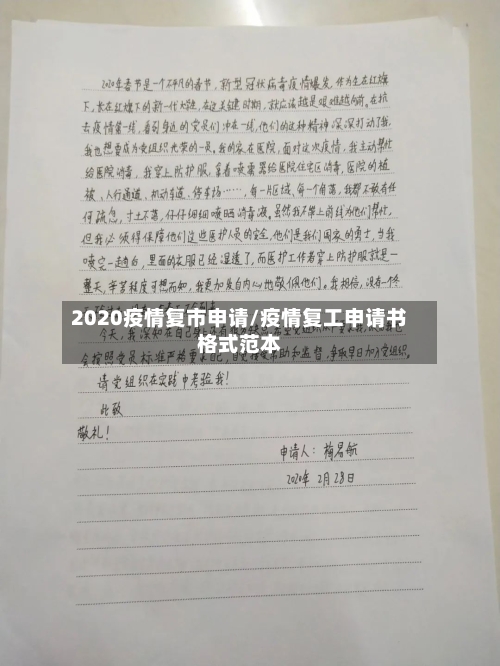 2020年春节是一个不平凡的春节，新型冠状病毒疫情爆发，作为生在红旗
下，长在红旗下的新一代大学生，在这关键时期，就应该越是艰难越向前。在抗
击疫情第一线，看到身边的党员们冲在一线，他们的这种精神深深打动了我，
我也想要成为党组织光荣的一员。我的家在医院，面对这次疫情，我主动帮忙
给医院消毒，我穿上防护服，拿着喷雾器给医院住宅区消毒，医院的植
被、人行通道、机动车道、停车场……，每一片区域，每一个角落，我都不敢有任
何疏忽，寸土不落，仔仔细细喷洒消毒液。虽然我不能上前线为他们帮忙，
但我必须得保障他们这些医护人员的安全，他们是我们国家的勇士，当我
喷完一趟后，里面的衣服已经湿透了，而医护工作者穿上防护服就是一
整天，辛苦程度可想而知，我更加发自内心地敬佩他们。我相信，没有一个冬
2020疫情复市申请/疫情复工申请书
格式范本
会按照党员标准严格要求自己，自觉接受帮助和监督，争取早日加入党组织。
请党组织在实践中考验我！
此致
敬礼！
申请人：梅君航
2020年 2月28日